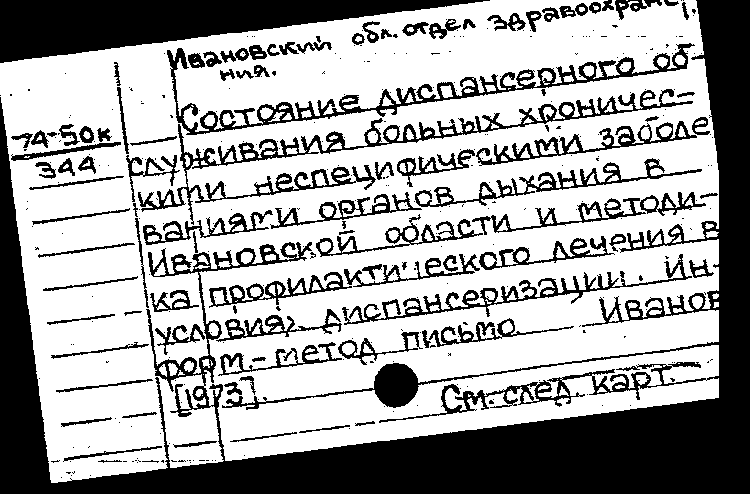 Ивановский обл. отдел здравоохране-
ния.
Состояние диспансерного об-
74-50к
344
служивания больных хроничес-
кими неспецифическими заболе
ваниями органов дыхания в
Ивановской области и методи-
ка профилактического лечения в
условиях диспансеризации. Ин-
форм.-метод письмо Иванов
[1973].
См. след. карт.